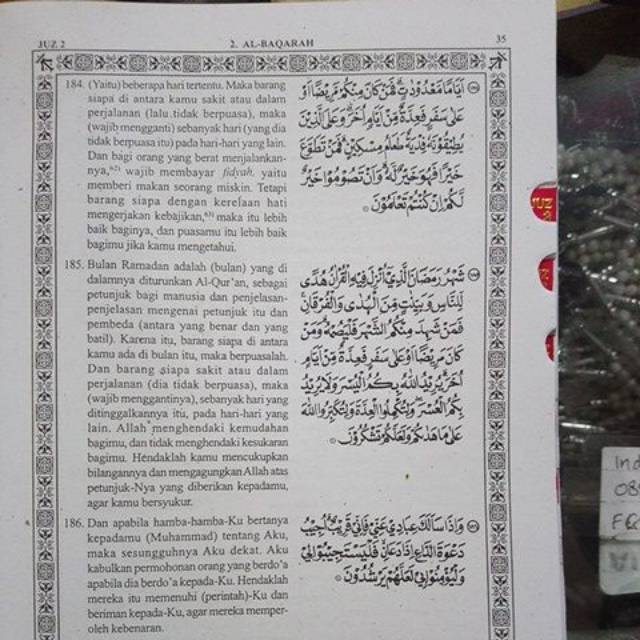 JUZ 2
2. AL-BAQARAH
35
184. (Yaitu) beberapa hari tertentu. Maka barang
siapa di antara kamu sakit atau dalam
perjalanan (lalu tidak berpuasa), maka
(wajib mengganti) sebanyak hari (yang dia
tidak berpuasa itu) pada hari-hari yang lain.
Dan bagi orang yang berat menjalankan-
nya,⁶²⁾ wajib membayar fidyah, yaitu
memberi makan seorang miskin. Tetapi
barang siapa dengan kerelaan hati
mengerjakan kebajikan,⁶³⁾ maka itu lebih
baik baginya, dan puasamu itu lebih baik
bagimu jika kamu mengetahui.
اَيَّامًا مَّعْدُوْدٰتٍۗ فَمَنْ كَانَ مِنْكُمْ مَّرِيْضًا اَوْ
عَلٰى سَفَرٍ فَعِدَّةٌ مِّنْ اَيَّامٍ اُخَرَۗ وَعَلَى الَّذِيْنَ
يُطِيْقُوْنَهٗ فِدْيَةٌ طَعَامُ مِسْكِيْنٍۗ فَمَنْ تَطَوَّعَ
خَيْرًا فَهُوَ خَيْرٌ لَّهٗۗ وَاَنْ تَصُوْمُوْا خَيْرٌ
لَّكُمْ اِنْ كُنْتُمْ تَعْلَمُوْنَ
185. Bulan Ramadan adalah (bulan) yang di
dalamnya diturunkan Al-Qur'an, sebagai
petunjuk bagi manusia dan penjelasan-
penjelasan mengenai petunjuk itu dan
pembeda (antara yang benar dan yang
batil). Karena itu, barang siapa di antara
kamu ada di bulan itu, maka berpuasalah.
Dan barang siapa sakit atau dalam
perjalanan (dia tidak berpuasa), maka
(wajib menggantinya), sebanyak hari yang
ditinggalkannya itu, pada hari-hari yang
lain. Allah menghendaki kemudahan
bagimu, dan tidak menghendaki kesukaran
bagimu. Hendaklah kamu mencukupkan
bilangannya dan mengagungkan Allah atas
petunjuk-Nya yang diberikan kepadamu,
agar kamu bersyukur.
شَهْرُ رَمَضَانَ الَّذِيْٓ اُنْزِلَ فِيْهِ الْقُرْاٰنُ هُدًى
لِّلنَّاسِ وَبَيِّنٰتٍ مِّنَ الْهُدٰى وَالْفُرْقَانِۚ
فَمَنْ شَهِدَ مِنْكُمُ الشَّهْرَ فَلْيَصُمْهُۗ وَمَنْ
كَانَ مَرِيْضًا اَوْ عَلٰى سَفَرٍ فَعِدَّةٌ مِّنْ اَيَّامٍ
اُخَرَۗ يُرِيْدُ اللّٰهُ بِكُمُ الْيُسْرَ وَلَا يُرِيْدُ
بِكُمُ الْعُسْرَۖ وَلِتُكْمِلُوا الْعِدَّةَ وَلِتُكَبِّرُوا اللّٰهَ
عَلٰى مَا هَدٰىكُمْ وَلَعَلَّكُمْ تَشْكُرُوْنَ
186. Dan apabila hamba-hamba-Ku bertanya
kepadamu (Muhammad) tentang Aku,
maka sesungguhnya Aku dekat. Aku
kabulkan permohonan orang yang berdo'a
apabila dia berdo'a kepada-Ku. Hendaklah
mereka itu memenuhi (perintah)-Ku dan
beriman kepada-Ku, agar mereka memper-
oleh kebenaran.
وَاِذَا سَاَلَكَ عِبَادِيْ عَنِّيْ فَاِنِّيْ قَرِيْبٌۗ اُجِيْبُ
دَعْوَةَ الدَّاعِ اِذَا دَعَانِۙ فَلْيَسْتَجِيْبُوْا لِيْ
وَلْيُؤْمِنُوْا بِيْ لَعَلَّهُمْ يَرْشُدُوْنَ
JUZ
2